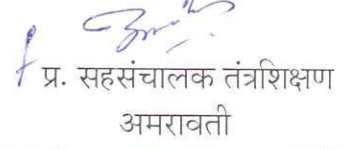 प्र. सहसंचालक तंत्रशिक्षण
अमरावती